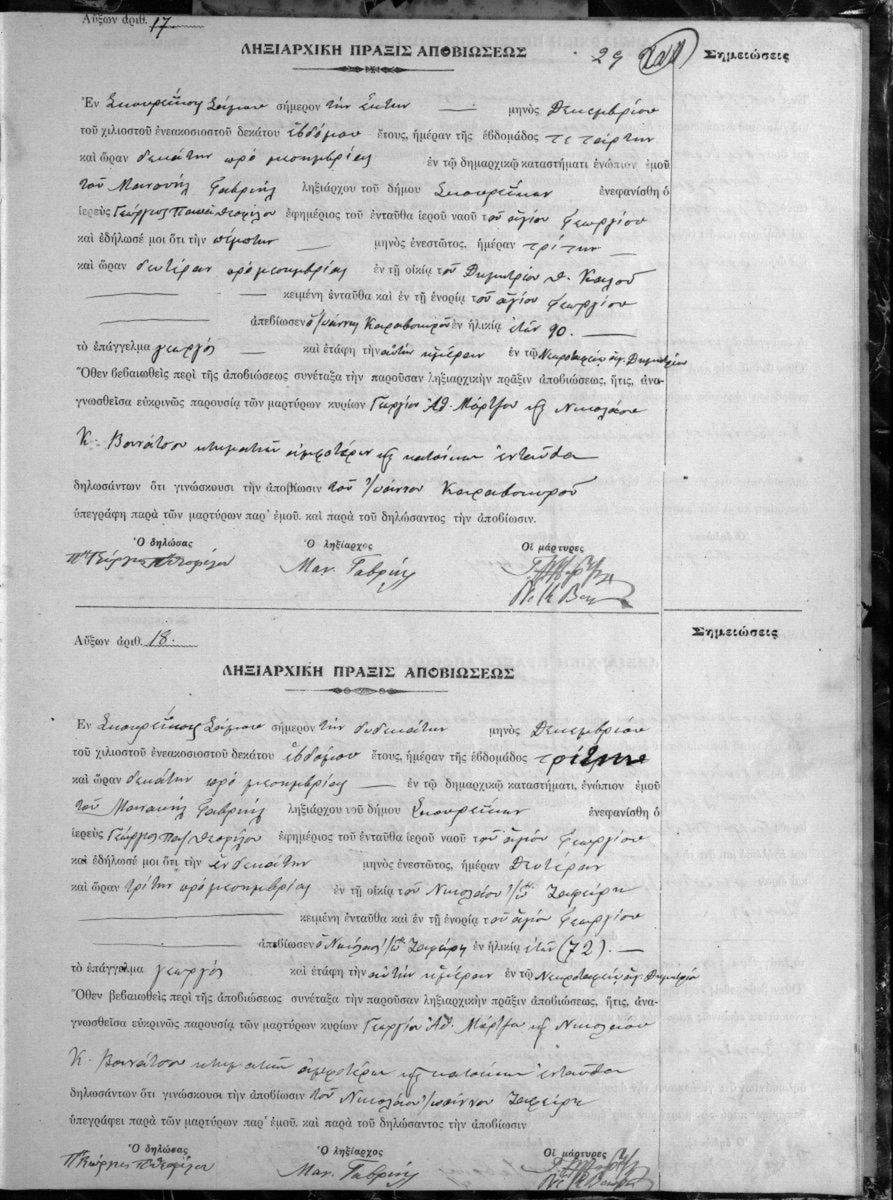 Αὔξων ἀριθ. 17
ΛΗΞΙΑΡΧΙΚΗ ΠΡΑΞΙΣ ΑΠΟΒΙΩΣΕΩΣ
29
Σημειώσεις
Ἐν Σκουρέϊκοις Σάμου σήμερον τὴν ἕκτην μηνὸς Δεκεμβρίου
τοῦ χιλιοστοῦ ἐνεακοσιοστοῦ δεκάτου ἑβδόμου ἔτους, ἡμέραν τῆς ἑβδομάδος τετάρτην
καὶ ὥραν δεκάτην πρὸ μεσημβρίας ἐν τῷ δημαρχικῷ καταστήματι ἐνώπιον ἐμοῦ
τοῦ Μανουὴλ Γαβριὴλ ληξιάρχου τοῦ δήμου Σκουρεΐκων ἐνεφανίσθη ὁ
ἱερεὺς Γεώργιος Παπᾶ Θεοφίλου ἐφημέριος τοῦ ἐνταῦθα ἱεροῦ ναοῦ τοῦ ἁγίου Γεωργίου
καὶ ἐδήλωσέ μοι ὅτι τὴν πέμπτην μηνὸς ἐνεστῶτος, ἡμέραν τρίτην
καὶ ὥραν δευτέραν πρὸ μεσημβρίας ἐν τῇ οἰκίᾳ τοῦ Δημητρίου Θ. Καλοῦ
κειμένῃ ἐνταῦθα καὶ ἐν τῇ ἐνορίᾳ τοῦ ἁγίου Γεωργίου
ἀπεβίωσεν ὁ Ἰωάννης Καραβοκυροῦ ἐν ἡλικίᾳ ἐτῶν 90.
τὸ ἐπάγγελμα γεωργὸς καὶ ἐτάφη τὴν αὐτὴν ἡμέραν ἐν τῷ Νεκροταφείῳ ἁγ. Δημητρίου
Ὅθεν βεβαιωθεὶς περὶ τῆς ἀποβιώσεως συνέταξα τὴν παροῦσαν ληξιαρχικὴν πρᾶξιν ἀποβιώσεως, ἥτις, ἀνα-
γνωσθεῖσα εὐκρινῶς παρουσίᾳ τῶν μαρτύρων κυρίων Γεωργίου Ἀθ. Μάρτζου καὶ Νικολάου
Κ. Βονάτσου κτηματιῶν ἀμφοτέρων καὶ κατοίκων ἐνταῦθα
δηλωσάντων ὅτι γινώσκουσι τὴν ἀποβίωσιν τοῦ Ἰωάννου Καραβοκυροῦ
ὑπεγράφη παρὰ τῶν μαρτύρων παρ' ἐμοῦ. καὶ παρὰ τοῦ δηλώσαντος τὴν ἀποβίωσιν.
Ὁ δηλώσας Ὁ ληξίαρχος Οἱ μάρτυρες
Μαν. Γαβριὴλ
Αὔξων ἀριθ. 18.
Σημειώσεις
ΛΗΞΙΑΡΧΙΚΗ ΠΡΑΞΙΣ ΑΠΟΒΙΩΣΕΩΣ
Ἐν Σκουρέϊκοις Σάμου σήμερον τὴν δωδεκάτην μηνὸς Δεκεμβρίου
τοῦ χιλιοστοῦ ἐνεακοσιοστοῦ δεκάτου ἑβδόμου ἔτους, ἡμέραν τῆς ἑβδομάδος τρίτην
καὶ ὥραν δεκάτην πρὸ μεσημβρίας ἐν τῷ δημαρχικῷ καταστήματι, ἐνώπιον ἐμοῦ
τοῦ Μανουὴλ Γαβριὴλ ληξιάρχου τοῦ δήμου Σκουρεΐκων ἐνεφανίσθη ὁ
ἱερεὺς Γεώργιος Παπ Θεοφίλου ἐφημέριος τοῦ ἐνταῦθα ἱεροῦ ναοῦ τοῦ ἁγίου Γεωργίου
καὶ ἐδήλωσέ μοι ὅτι τὴν ἑνδεκάτην μηνὸς ἐνεστῶτος, ἡμέραν Δευτέραν
καὶ ὥραν τρίτην πρὸ μεσημβρίας ἐν τῇ οἰκίᾳ τοῦ Νικολάου Ἰω. Ζαφείρη
κειμένῃ ἐνταῦθα καὶ ἐν τῇ ἐνορίᾳ τοῦ ἁγίου Γεωργίου
ἀπεβίωσεν ὁ Νικόλαος Ἰω. Ζαφείρη ἐν ἡλικίᾳ ἐτῶν (72).
τὸ ἐπάγγελμα γεωργὸς καὶ ἐτάφη τὴν αὐτὴν ἡμέραν ἐν τῷ Νεκροταφείῳ ἁγ. Δημητρίου
Ὅθεν βεβαιωθεὶς περὶ τῆς ἀποβιώσεως συνέταξα τὴν παροῦσαν ληξιαρχικὴν πρᾶξιν ἀποβιώσεως, ἥτις, ἀνα-
γνωσθεῖσα εὐκρινῶς παρουσίᾳ τῶν μαρτύρων κυρίων Γεωργίου Ἀθ. Μάρτζου καὶ Νικολάου
Κ. Βονάτσου κτηματιῶν ἀμφοτέρων καὶ κατοίκων ἐνταῦθα
δηλωσάντων ὅτι γινώσκουσι τὴν ἀποβίωσιν τοῦ Νικολάου Ἰωάννου Ζαφείρη
ὑπεγράφει παρὰ τῶν μαρτύρων παρ' ἐμοῦ. καὶ παρὰ τοῦ δηλώσαντος τὴν ἀποβίωσιν
Ὁ δηλώσας Ὁ ληξίαρχος Οἱ μάρτυρες
Μαν. Γαβριὴλ